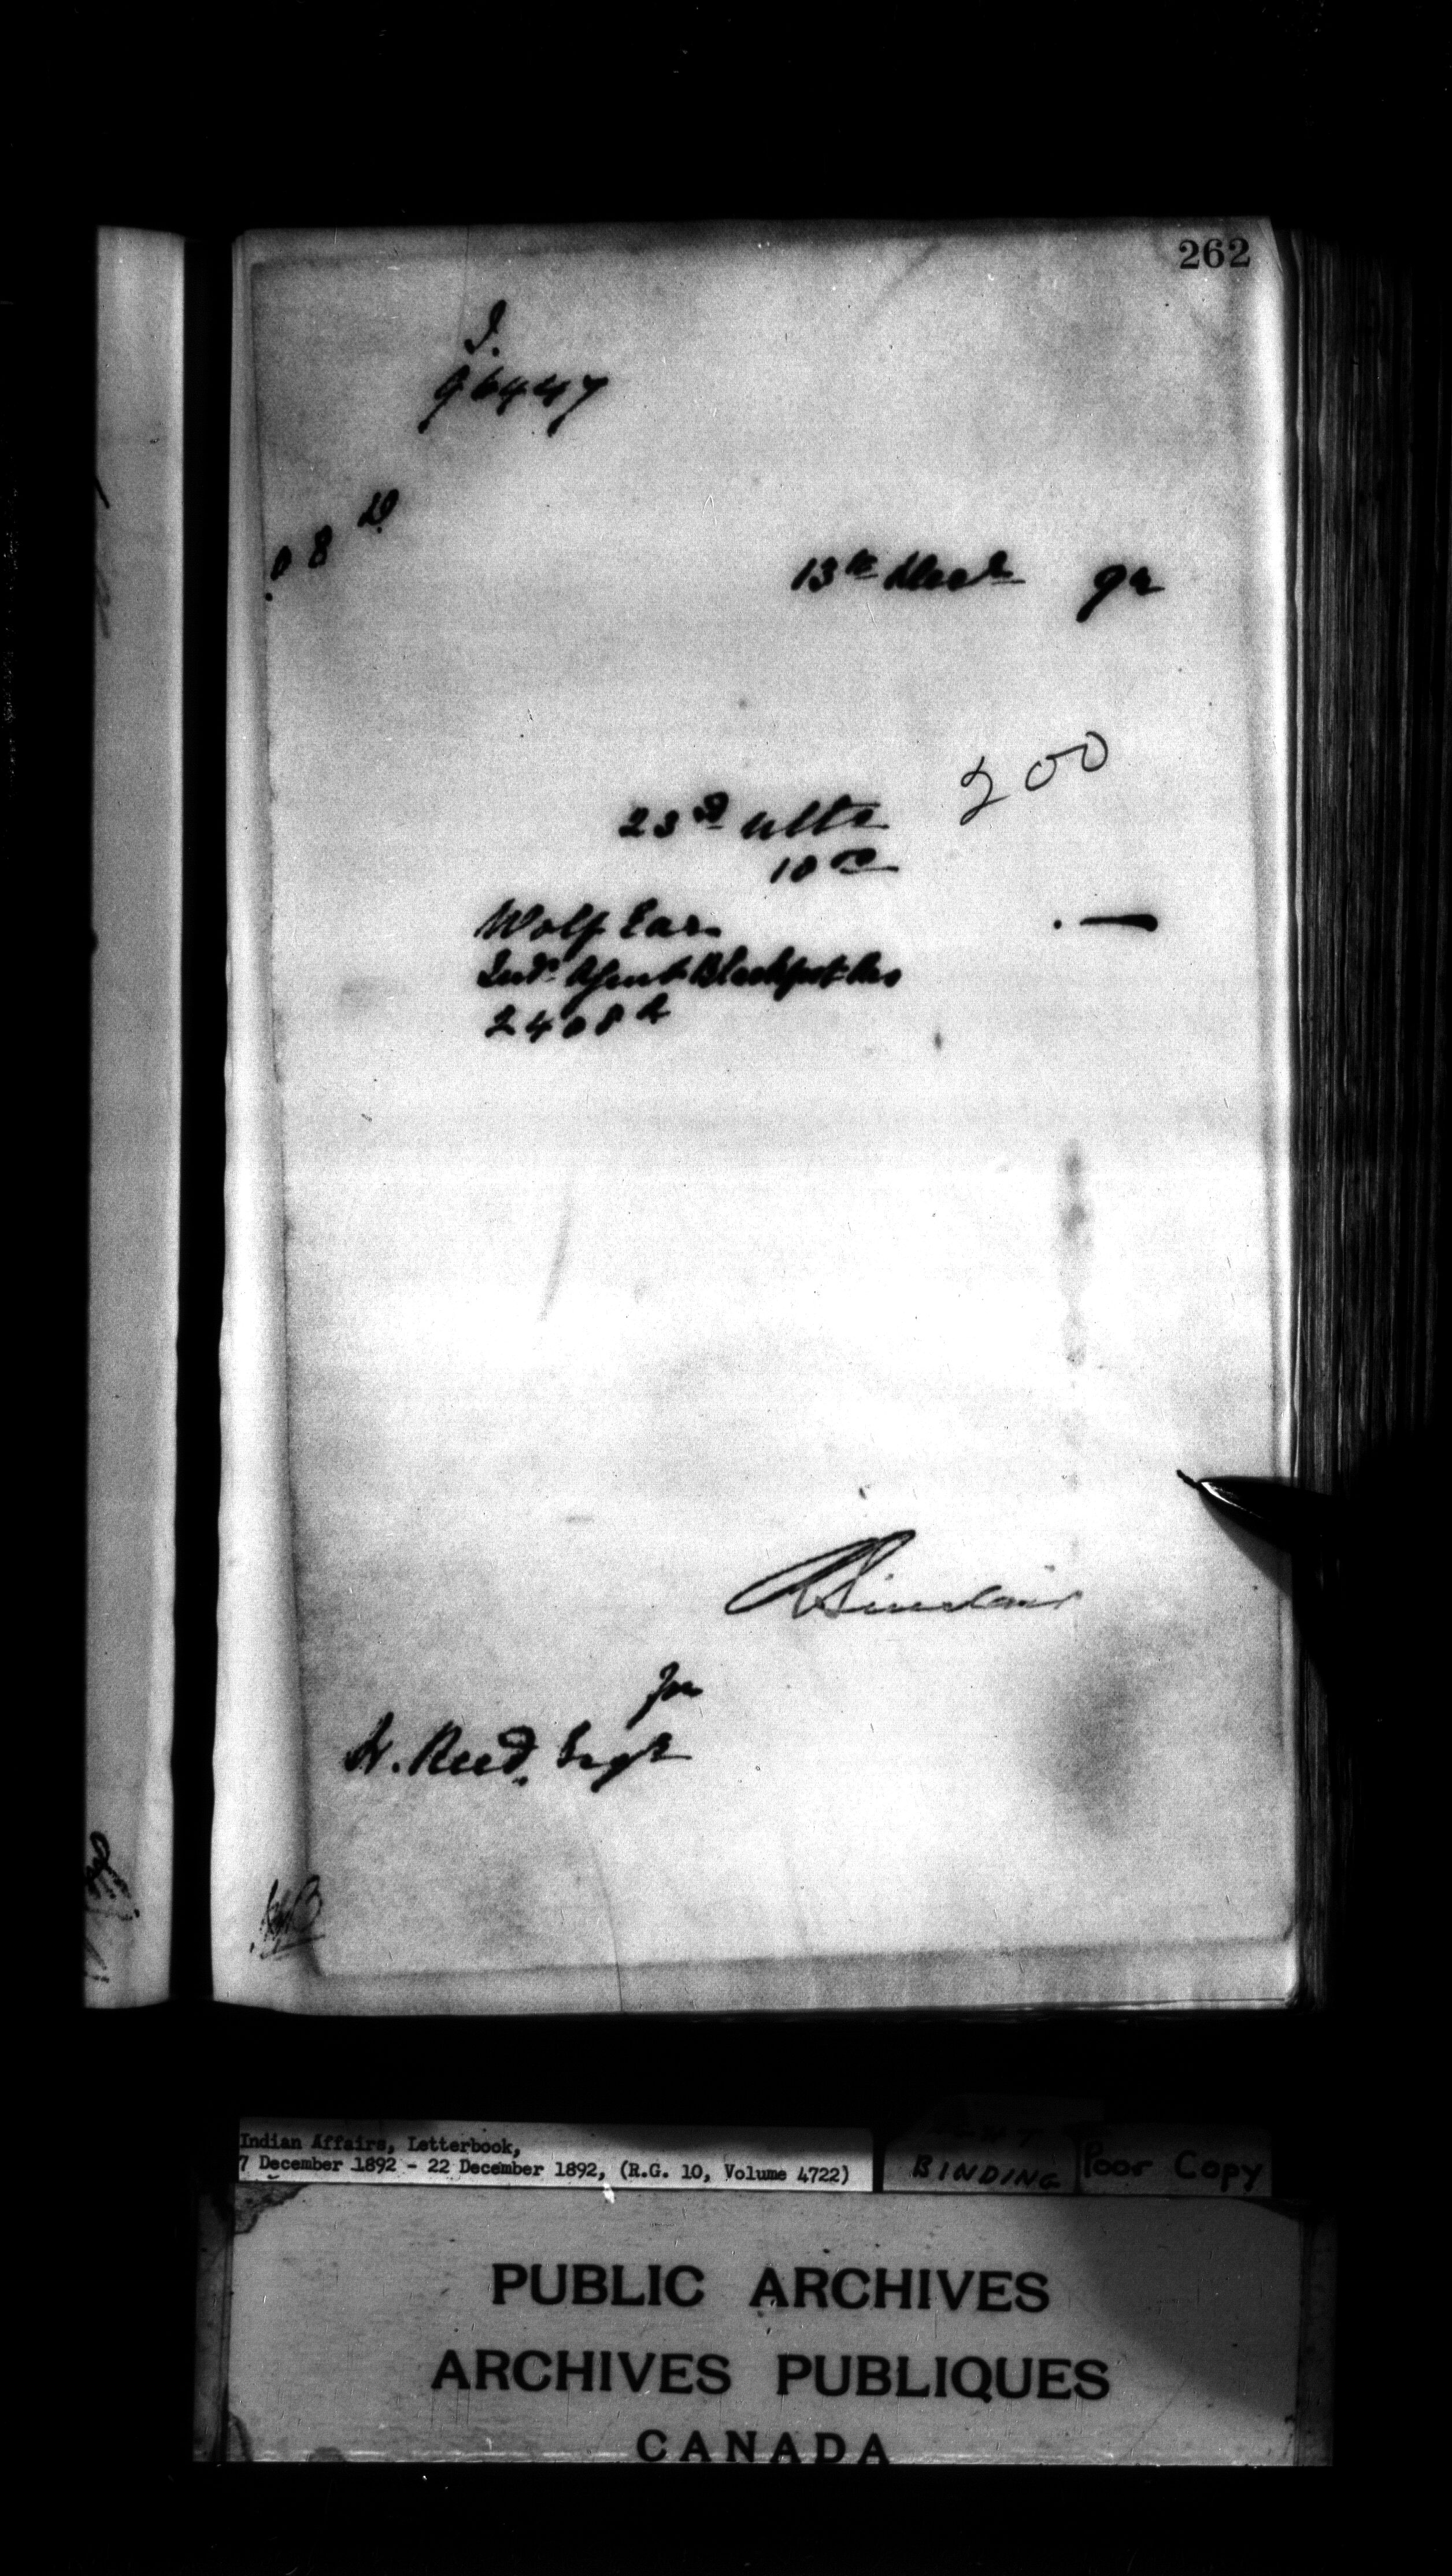 262
I.
96447
08 D
13th Decr 92
200
23rd ulto
10 00
Wolf Ear
Indn Agent Blackfoot Res
2408 A
Sinclair
for
H. Reed, Regt
Indian Affairs, Letterbook,
7 December 1892 - 22 December 1892, (R.G. 10, Volume 4722)
BINDING
Poor Copy
PUBLIC ARCHIVES
ARCHIVES PUBLIQUES
CANADA